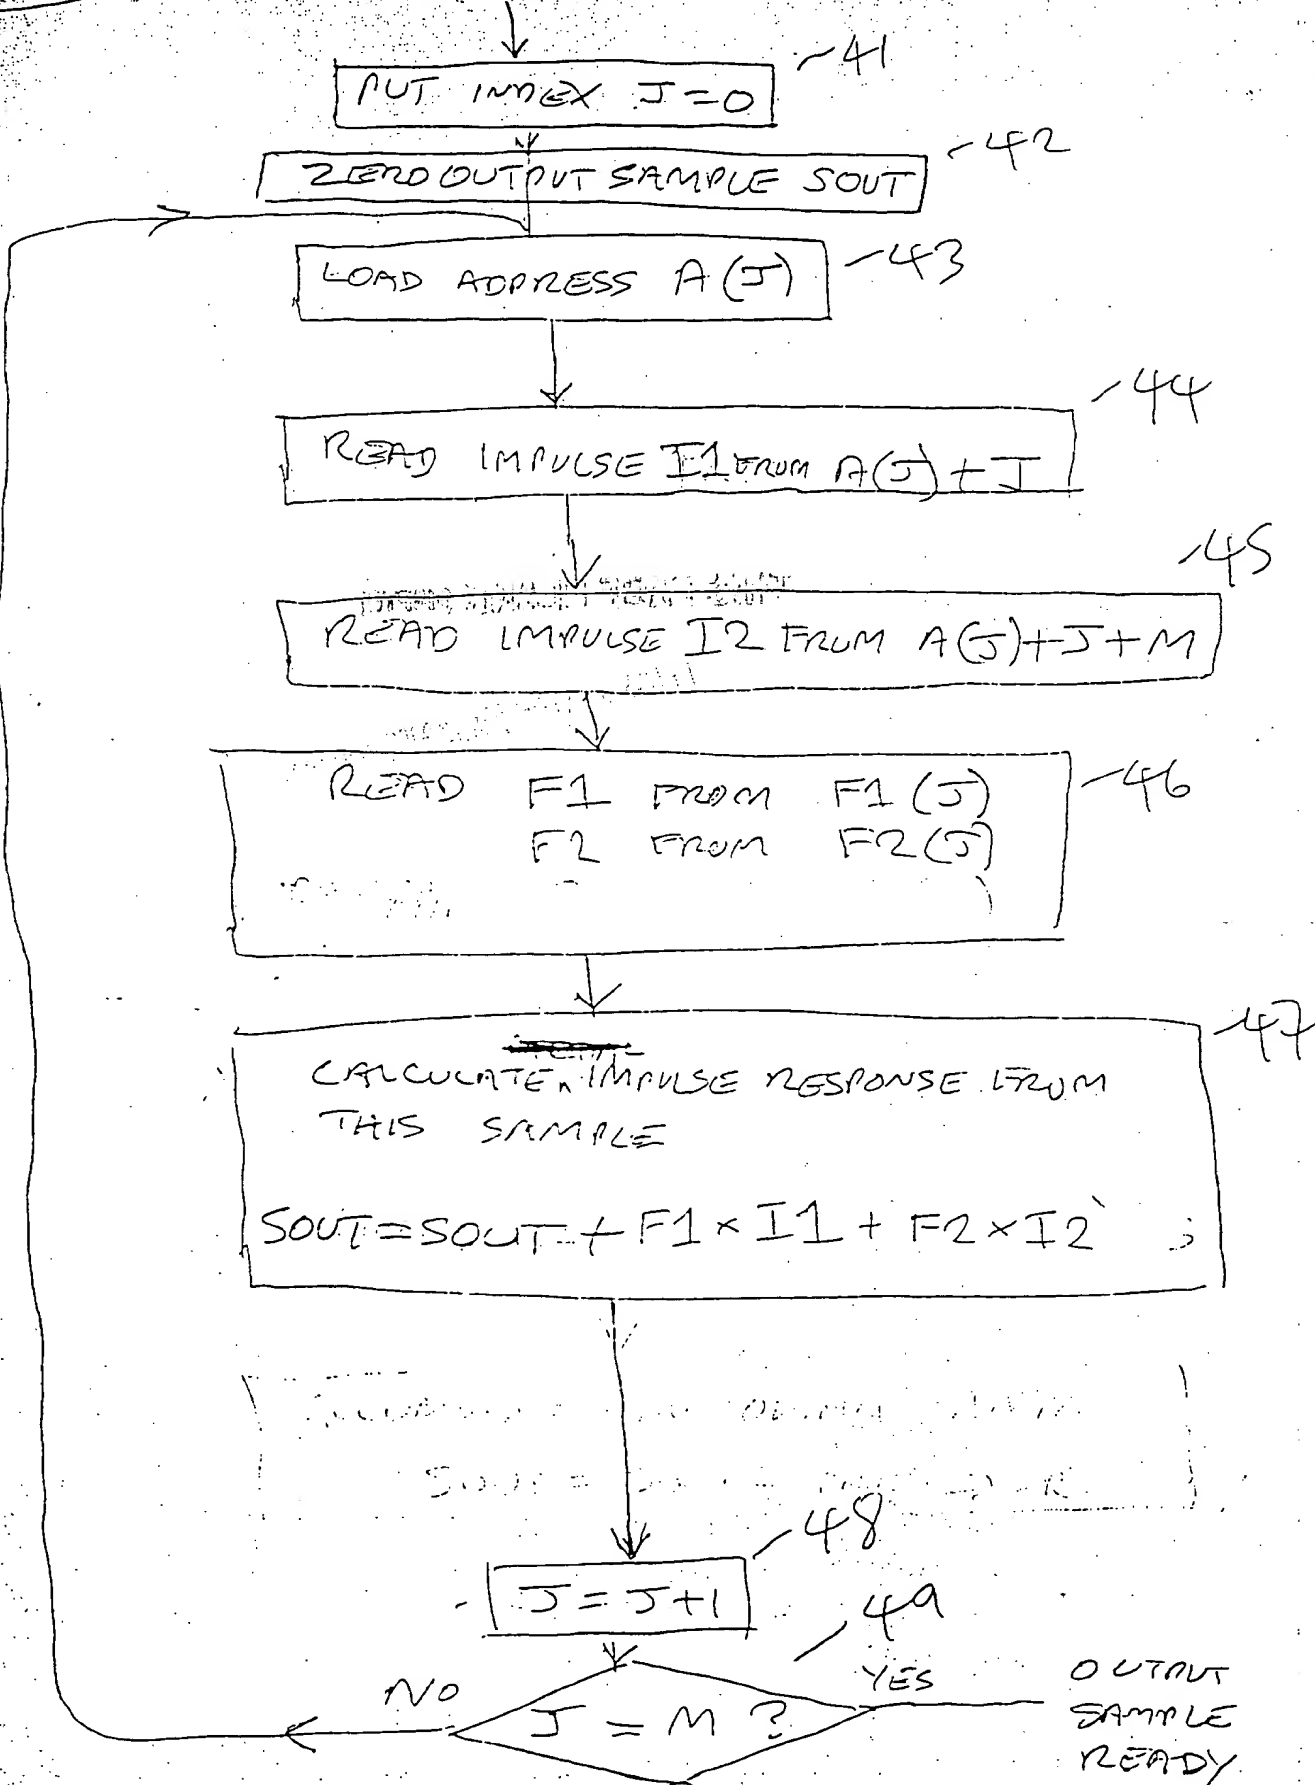 41
PUT INDEX J=0
42
ZERO OUTPUT SAMPLE SOUT
43
LOAD ADDRESS A(J)
44
READ IMPULSE I1 FROM A(J)+J
45
READ IMPULSE I2 FROM A(J)+J+M
46
READ F1 FROM F1(J)
F2 FROM F2(J)
47
CALCULATE IMPULSE RESPONSE FROM
THIS SAMPLE
SOUT=SOUT+F1×I1+F2×I2 ;
48
J=J+1
49
NO
J=M?
YES
OUTPUT
SAMPLE
READY